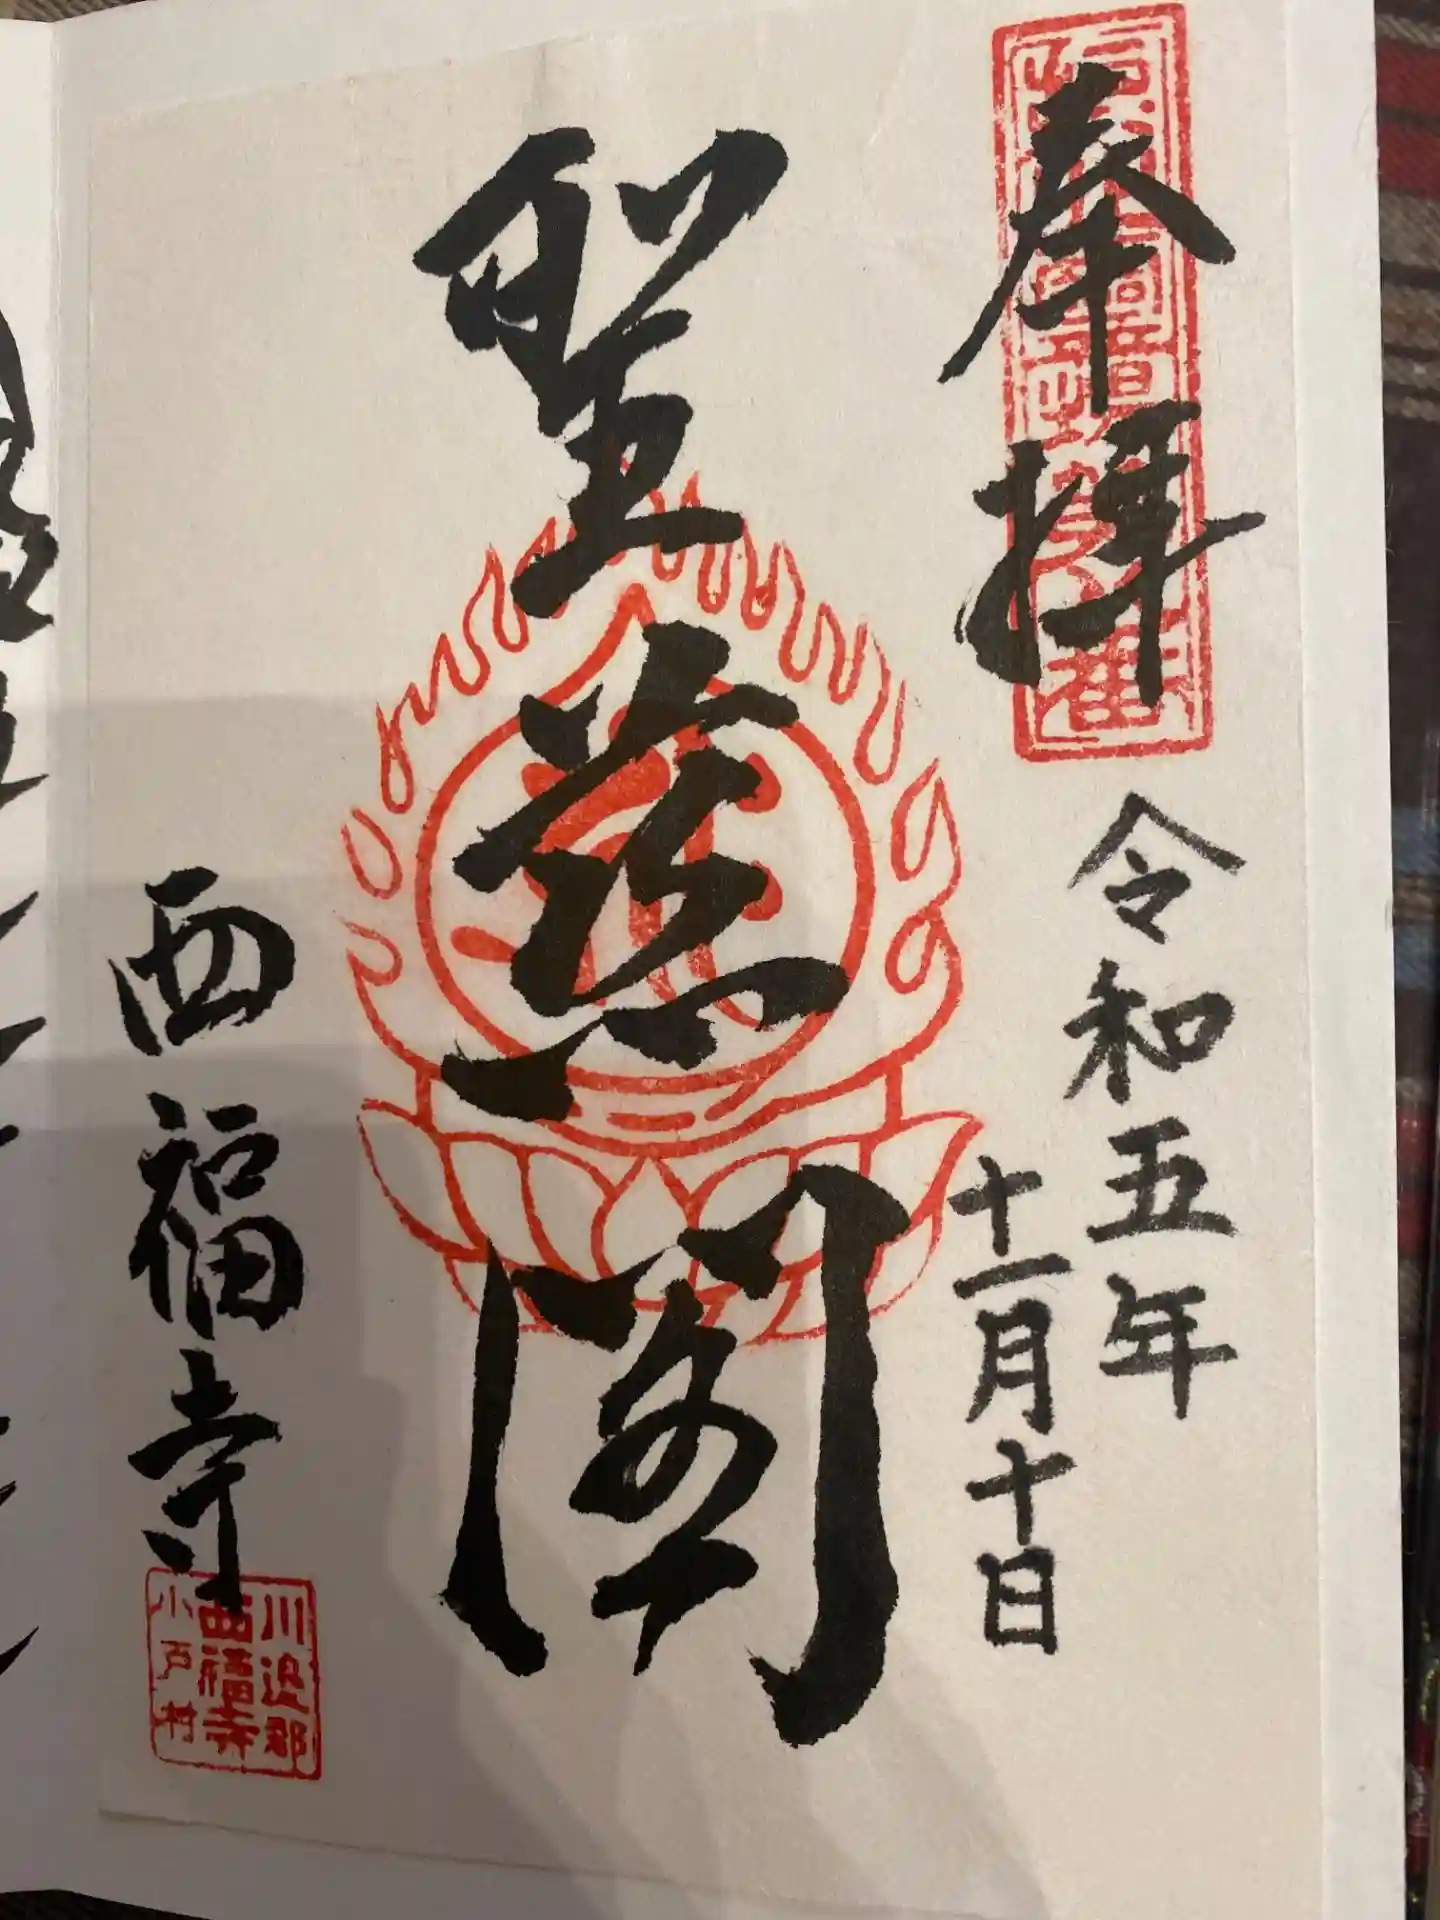 奉拝
令和五年
十一月十日
聖慈閣
西福寺
川边郡
西福寺
小戸村